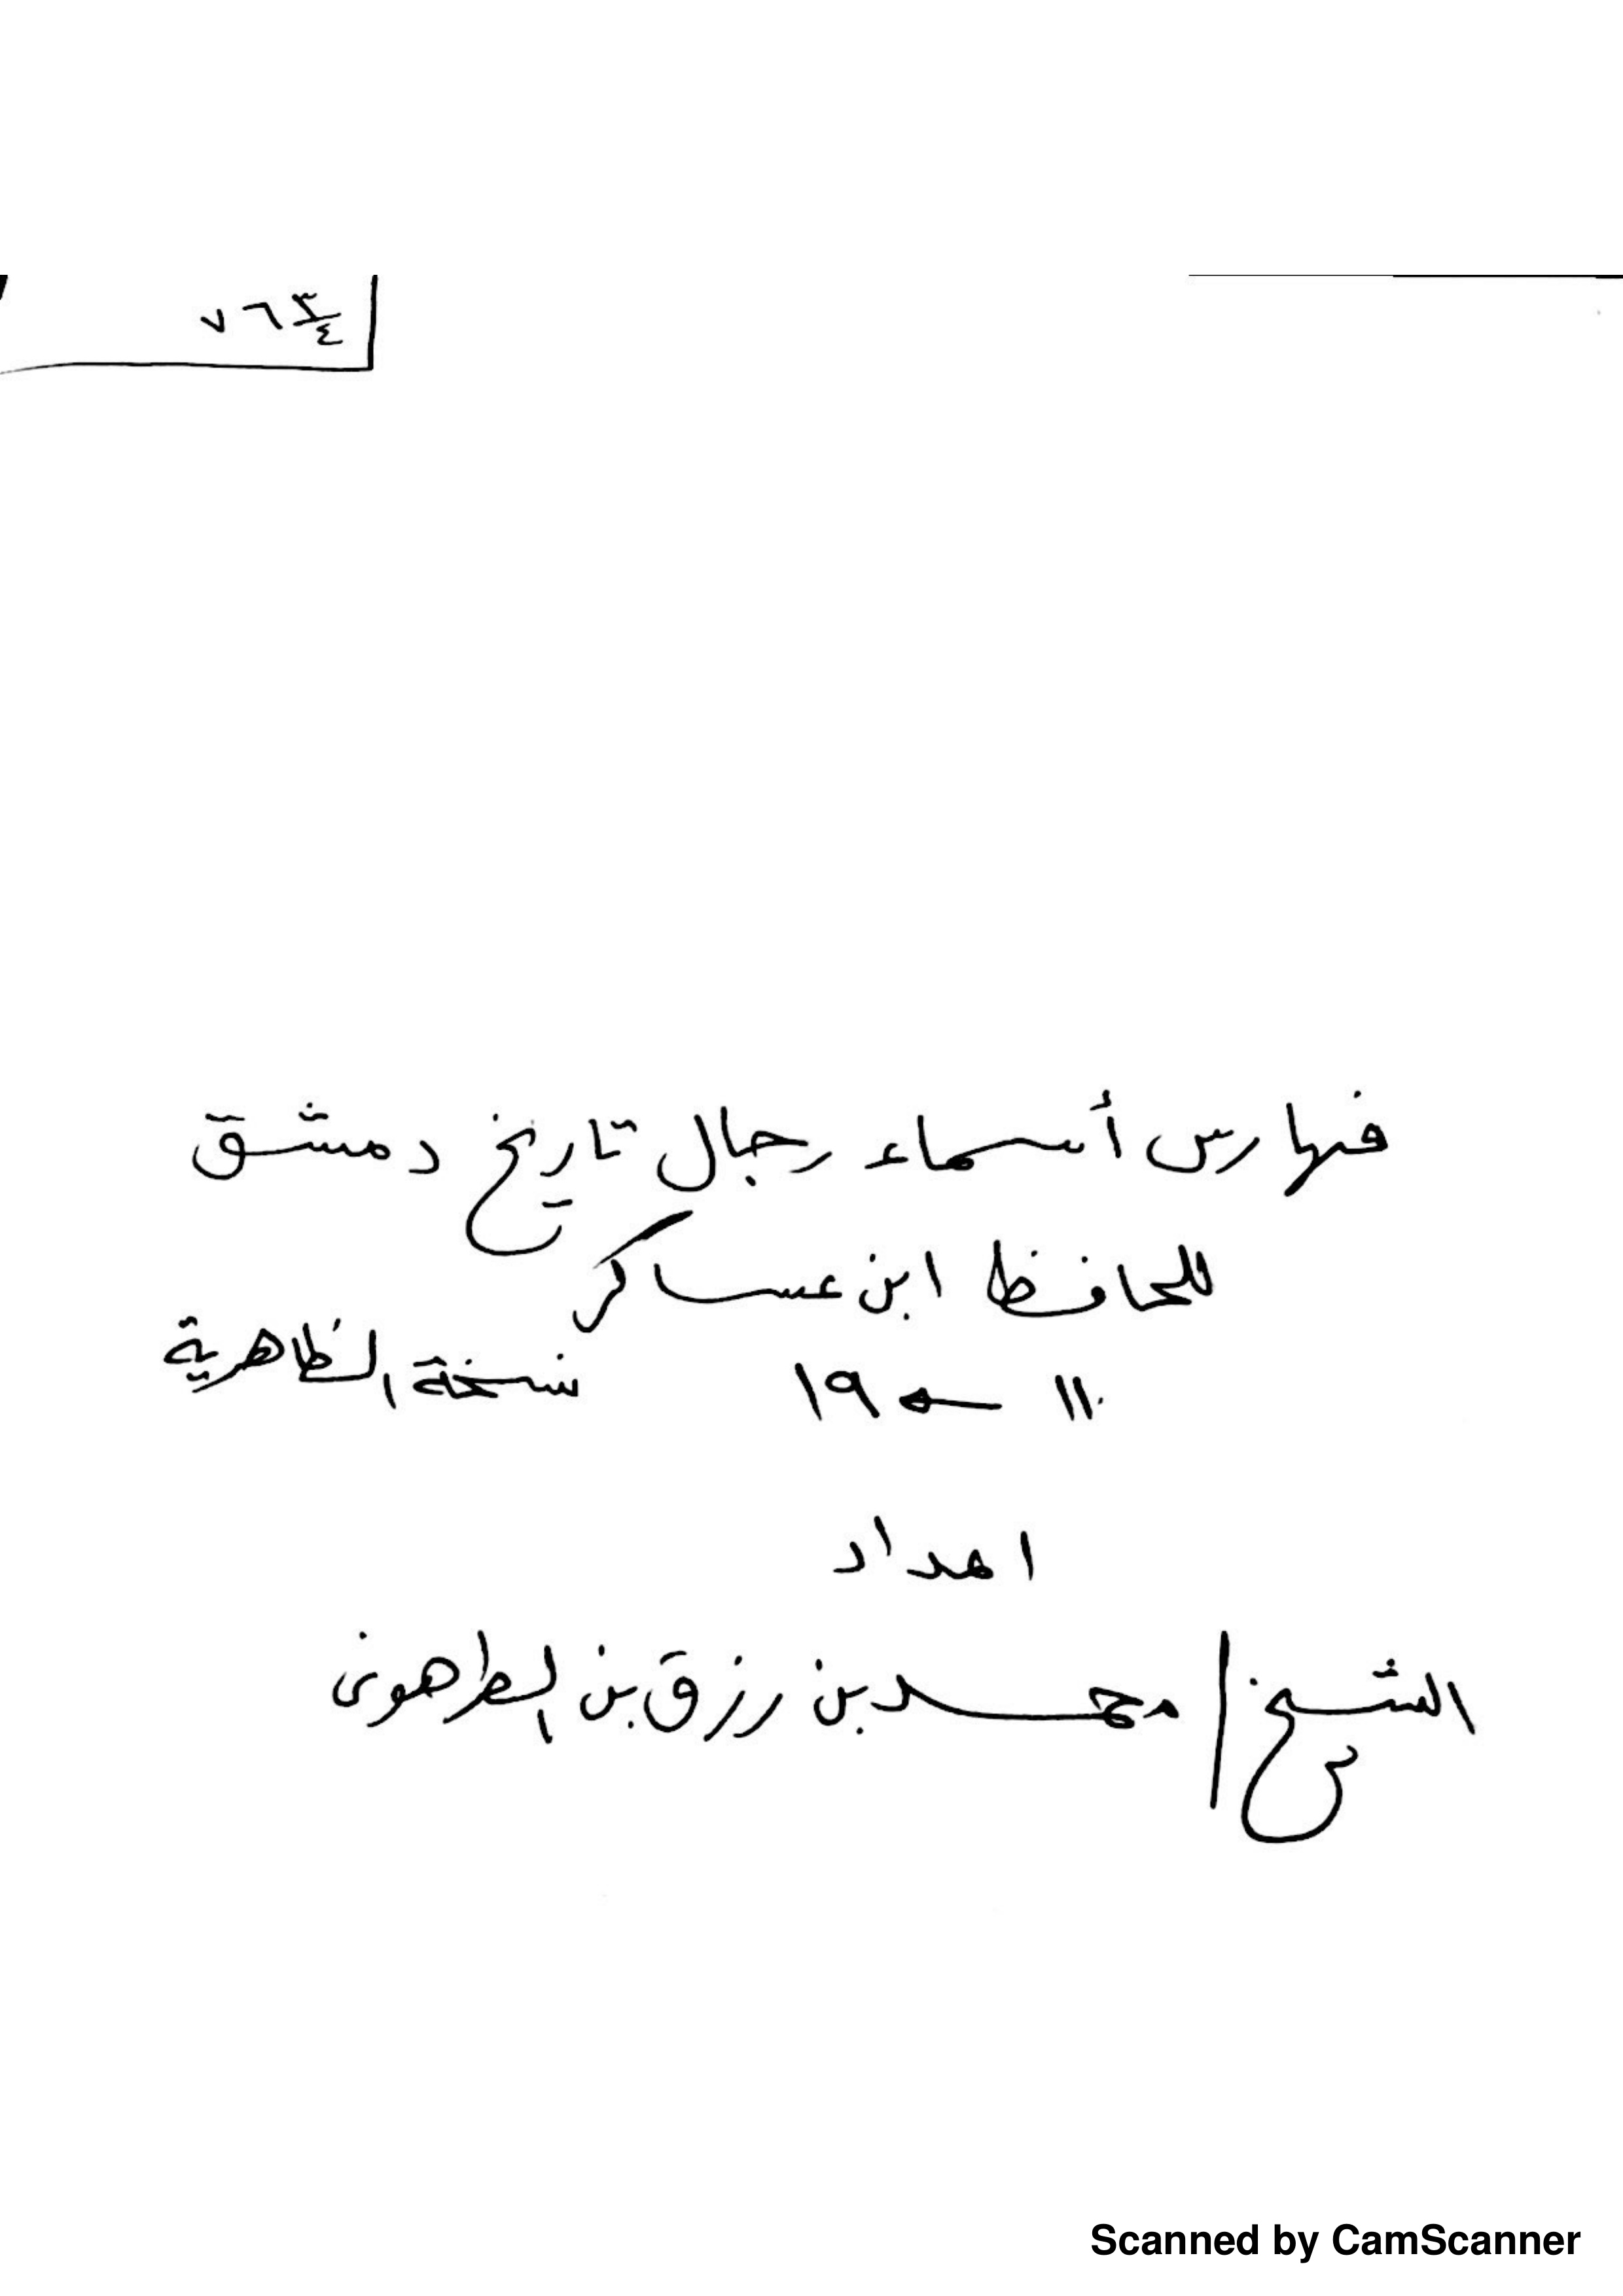 ٧٦ ٣/٤
فهارس أسماء رجال تاريخ دمشق
للحافظ ابن عساكر
١١٠ ــه ١٩ نسخة الظاهرية
اعداد
الشيخ / محمد بن رزق بن الطرهوني
Scanned by CamScanner